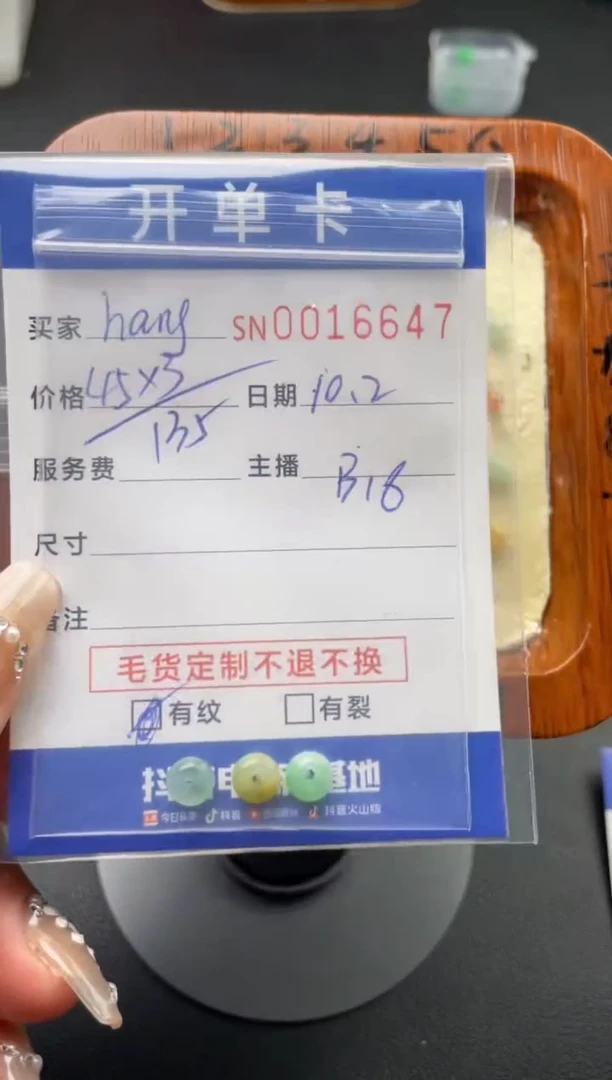 1 2 3 4 5 6
开单卡
买家 hang SN0016647
价格 45×3 日期 10.2
135
服务费 主播 B16
尺寸
备注
毛货定制不退不换
有纹 有裂
抖 电 基地
今日头条 抖音 抖音火山版